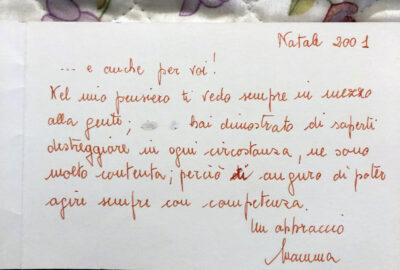 Natale 2001
... e anche per voi!
Nel mio pensiero ti vedo sempre in mezzo
alla gente; hai dimostrato di saperti
destreggiare in ogni circostanza, ne sono
molto contenta; perciò ti auguro di poter
agire sempre con competenza.
Un abbraccio
Mamma